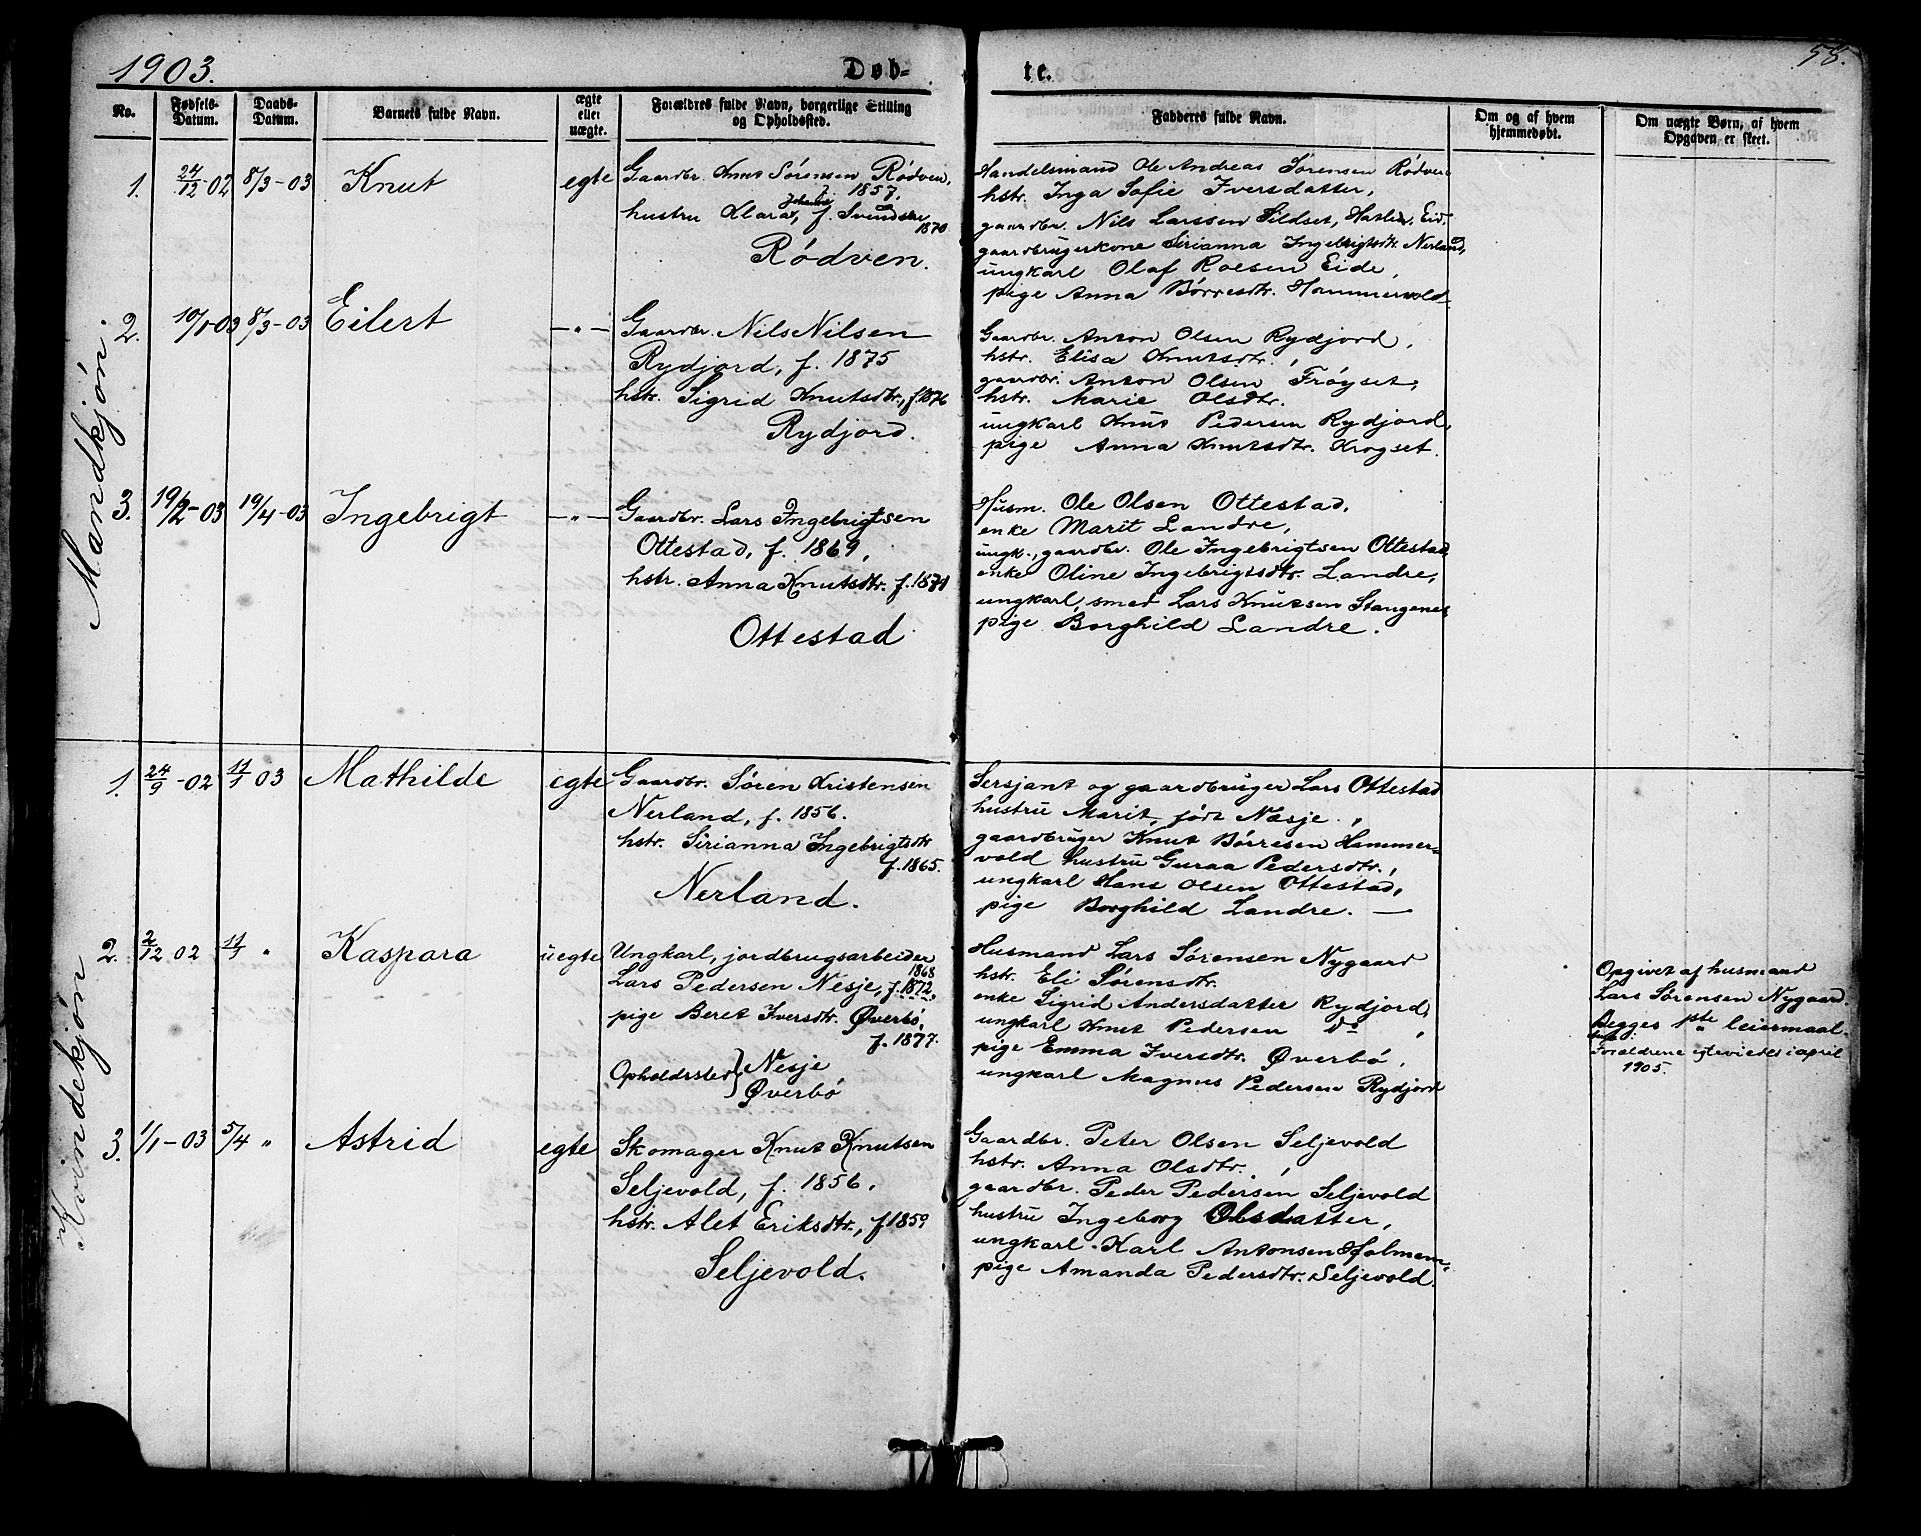 1903.
Døb-
te.
58.
No.
Fødsels-
Datum.
Daabs-
Datum.
Barnets fulde Navn.
ægte
eller
uægte.
Forældres fulde Navn, borgerlige Stilling
og Opholdssted.
Fadderes fulde Navn.
Om og af hvem
hjemmedøbt.
Om uægte Børn, af hvem
Opgaven er skeet.
Mandkjøn.
1.
24/12-02
8/3-03
Knut
egte
Gaardbr. Knut Sørensen Rødven,
f. 1857,
hustru Klara Johanna, f. Svendsen
1870
Rødven.
Handelsmand Ole Andreas Sørensen Rødven
hstr. Inga Sofie Iversdatter,
gaardbr. Nils Larssen Sildset, Hatlen. Eid,
gaardbrugerkone Sirianna Ingebrigtsdtr. Nerland,
ungkarl Olaf Roesen Eide,
pige Anna Børresdtr. Hammervold.
2.
10/1-03
8/3-03
Eilert
—"—
Gaardbr. Nils Nilsen
Rydjord, f. 1875
hstr. Sigrid Knutsdtr., f. 1876
Rydjord.
Gaardbr. Anton Olsen Rydjord,
hstr. Elisa Knutsdtr.,
gaardbr. Anton Olsen Frøyset,
hstr. Marie Olsdtr.
ungkarl Knut Pedersen Rydjord,
pige Anna Knutsdtr. Krogset.
3.
19/2-03
19/4-03
Ingebrigt
—"—
Gaardbr. Lars Ingebrigtsen
Ottestad, f. 1869,
hstr. Anna Knutsdtr. f. 1871
Ottestad
Husm. Ole Olsen Ottestad,
enke Marit Landre,
ungk., gaardbr. Ole Ingebrigtsen Ottestad,
enke Oline Ingebrigtsdtr. Landre,
ungkarl, smed Lars Knutsen Stangenes
pige Borghild Landre.
Kvindekjøn
1.
24/9-02
11/1 03
Mathilde
egte
Gaardbr. Søren Kristensen
Nerland, f. 1856.
hstr. Sirianna Ingebrigtsdtr
f. 1865.
Nerland.
Sersjant og gaardbruger Lars Ottestad
hustru Marit, født Næsje,
gaardbruger Knut Børresen Hammer-
vold hustru Guraa Pedersdtr.,
ungkarl Hans Olsen Ottestad,
pige Borghild Landre. —
2.
2/12 02
11/1 "
Kaspara
uegte
Ungkarl, jordbrugsarbeider
1868
Lars Pedersen Nesje, f. 1872,
pige Beret Iversdtr. Øverbø,
f. 1877.
Opholdssted } Nesje
Øverbø
Husmand Lars Sørensen Nygaard
hstr. Eli Sørensdtr.
enke Sigrid Andersdatter Rydjord,
ungkarl Knut Pedersen do,
pige Emma Iversdtr. Øverbø,
ungkarl Magnus Pedersen Rydjord
Opgivet af husmand
Lars Sørensen Nygaard.
Begges 1ste leiermaal.
Forældrene egteviedes i april
1905.
3.
1/1-03
5/4 "
Astrid
egte
Skomager Knut Knutsen
Seljevold, f. 1856,
hstr. Alet Eriksdtr., f. 1859
Seljevold.
Gaardbr. Peter Olsen Seljevold
hstr. Anna Olsdtr.,
gaardbr. Peder Pedersen Seljevold
hustru Ingeborg Olsdatter,
ungkarl Karl Antonsen Holmem,
pige Amanda Pedersdtr. Seljevold.